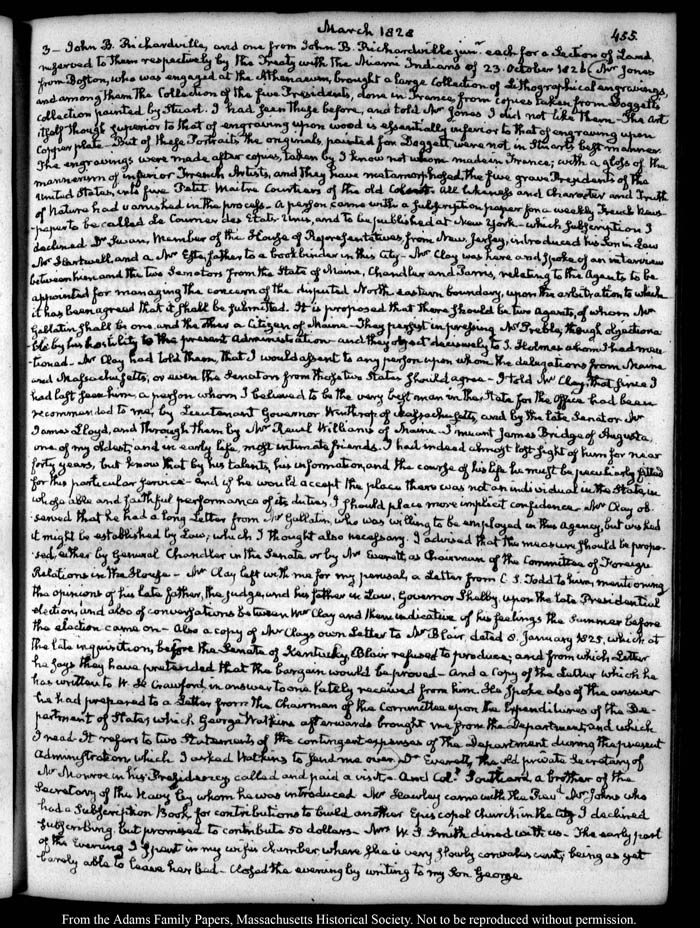 March 1828
455
3 – John B. Richardville, and one from John B. Richardville junr. each for a Section of Land,
reserved to them respectively by the Treaty with the Miami Indians of 23. October 1826. Mr Jones
from Boston, who was engaged at the Athenaeum, brought a large Collection of Lithographical engravings,
and among them the Collection of the five Presidents, done in France, from copies taken from Doggett's
collection painted by Stuart. I had seen these before, and told Mr Jones I did not like them – The Art
itself though superior to that of engraving upon wood is essentially inferior to that of engraving upon
Copper plate – But of these Portraits the originals, painted for Doggett were not in Stuart's best manner.
The engravings were made after copies, taken by I know not whom made in France; with a gloss of the
mannerism of inferior French Artists, and they have metamorphosed the five grave Presidents of the
United States, into five Petit Maitre Courtiers of the old Court. All likeness and Character and Truth
of Nature had vanished in the process – A person came with a subscription paper for a weekly French News-
paper to be called Le Courier des Etats Unis, and to be published at New York – which subscription I
declined. Dr Swan, Member of the House of Representatives, from New Jersey, introduced his Son in Law
Mr Hartwell, and a Mr Este, father to a book binder in this City – Mr Clay was here and spoke of an interview
between him and the two Senators from the State of Maine, Chandler and Parris, relating to the Agents to be
appointed for managing the concern of the disputed North eastern boundary, upon the arbitration to which
it has been agreed that it shall be submitted. It is proposed that there should be two Agents, of whom Mr
Gallatin shall be one and the other a Citizen of Maine – They persist in pressing Mr Preble, though objectiona-
ble by his hostility to the present Administration – and they object decisively to J. Holmes whom I had men-
tioned – Mr Clay had told them, that I would assent to any person upon whom the delegations from Maine
and Massachusetts, or even the Senators from those two States should agree – I told Mr Clay that since I
had last seen him, a person whom I believed to be the very best man in the State for the office had been
recommended to me, by Lieutenant Governor Winthrop of Massachusetts, and by the late Senator Mr
James Lloyd, and through them by Mr Reuel Williams of Maine – I meant James Bridge of Augusta,
one of my oldest, and in early life, most intimate friends. I had indeed almost lost sight of him for near
forty years, but know that by his talents, his information, and the course of his life he must be peculiarly fitted
for this particular service – and if he would accept the place there was not an individual in the State in
whose able and faithful performance of its duties I should place more implicit confidence – Mr Clay ob-
served that he had a long Letter from Mr Gallatin, who was willing to be employed in this agency, but wished
it might be established by Law; which I thought also necessary. I advised that the measure should be propo-
sed, either by General Chandler in the Senate or by Mr Everett, as Chairman of the Committee of Foreign
Relations in the House – Mr Clay left with me for my perusal, a Letter from C. S. Todd to him, mentioning
the opinions of his late father, the Judge, and his father in Law, Governor Shelby, upon the late Presidential
election, and also of conversations between Mr Clay and them indicative of his feelings the Summer before
the election came on – Also a copy of Mr Clay's own Letter to Mr Blair, dated 8. January 1825, which at
the late inquisition, before the Senate of Kentucky, Blair refused to produce; and from which Letter
he says they have pretended that the bargain would be proved – And a Copy of the Letter which he
has written to W. H. Crawford, in answer to one lately received from him. He spoke also of the answer
he had prepared to a Letter from the Chairman of the Committee upon the Expenditures of the De-
partment of State, which George Watkins afterwards brought me from the Department, and which
I read. It refers to two Statements of the contingent expenses of the Department during the present
Administration which I asked Watkins to send me over. Dr Everett, the old private Secretary of
Mr Monroe in his Presidency called and paid a visit – And Colo. Southard a brother of the
Secretary of the Navy by whom he was introduced. Mr Hawley came with the Revd. Mr Johns who
had a Subscription Book for contributions to build another Episcopal Church in the City. I declined
subscribing, but promised to contribute 50 dollars – Mrs W. S. Smith dined with us – The early part
of the Evening I spent in my wife's chamber, where she is very slowly convalescent; being as yet
barely able to leave her bed – Closed the evening by writing to my Son George
From the Adams Family Papers, Massachusetts Historical Society. Not to be reproduced without permission.